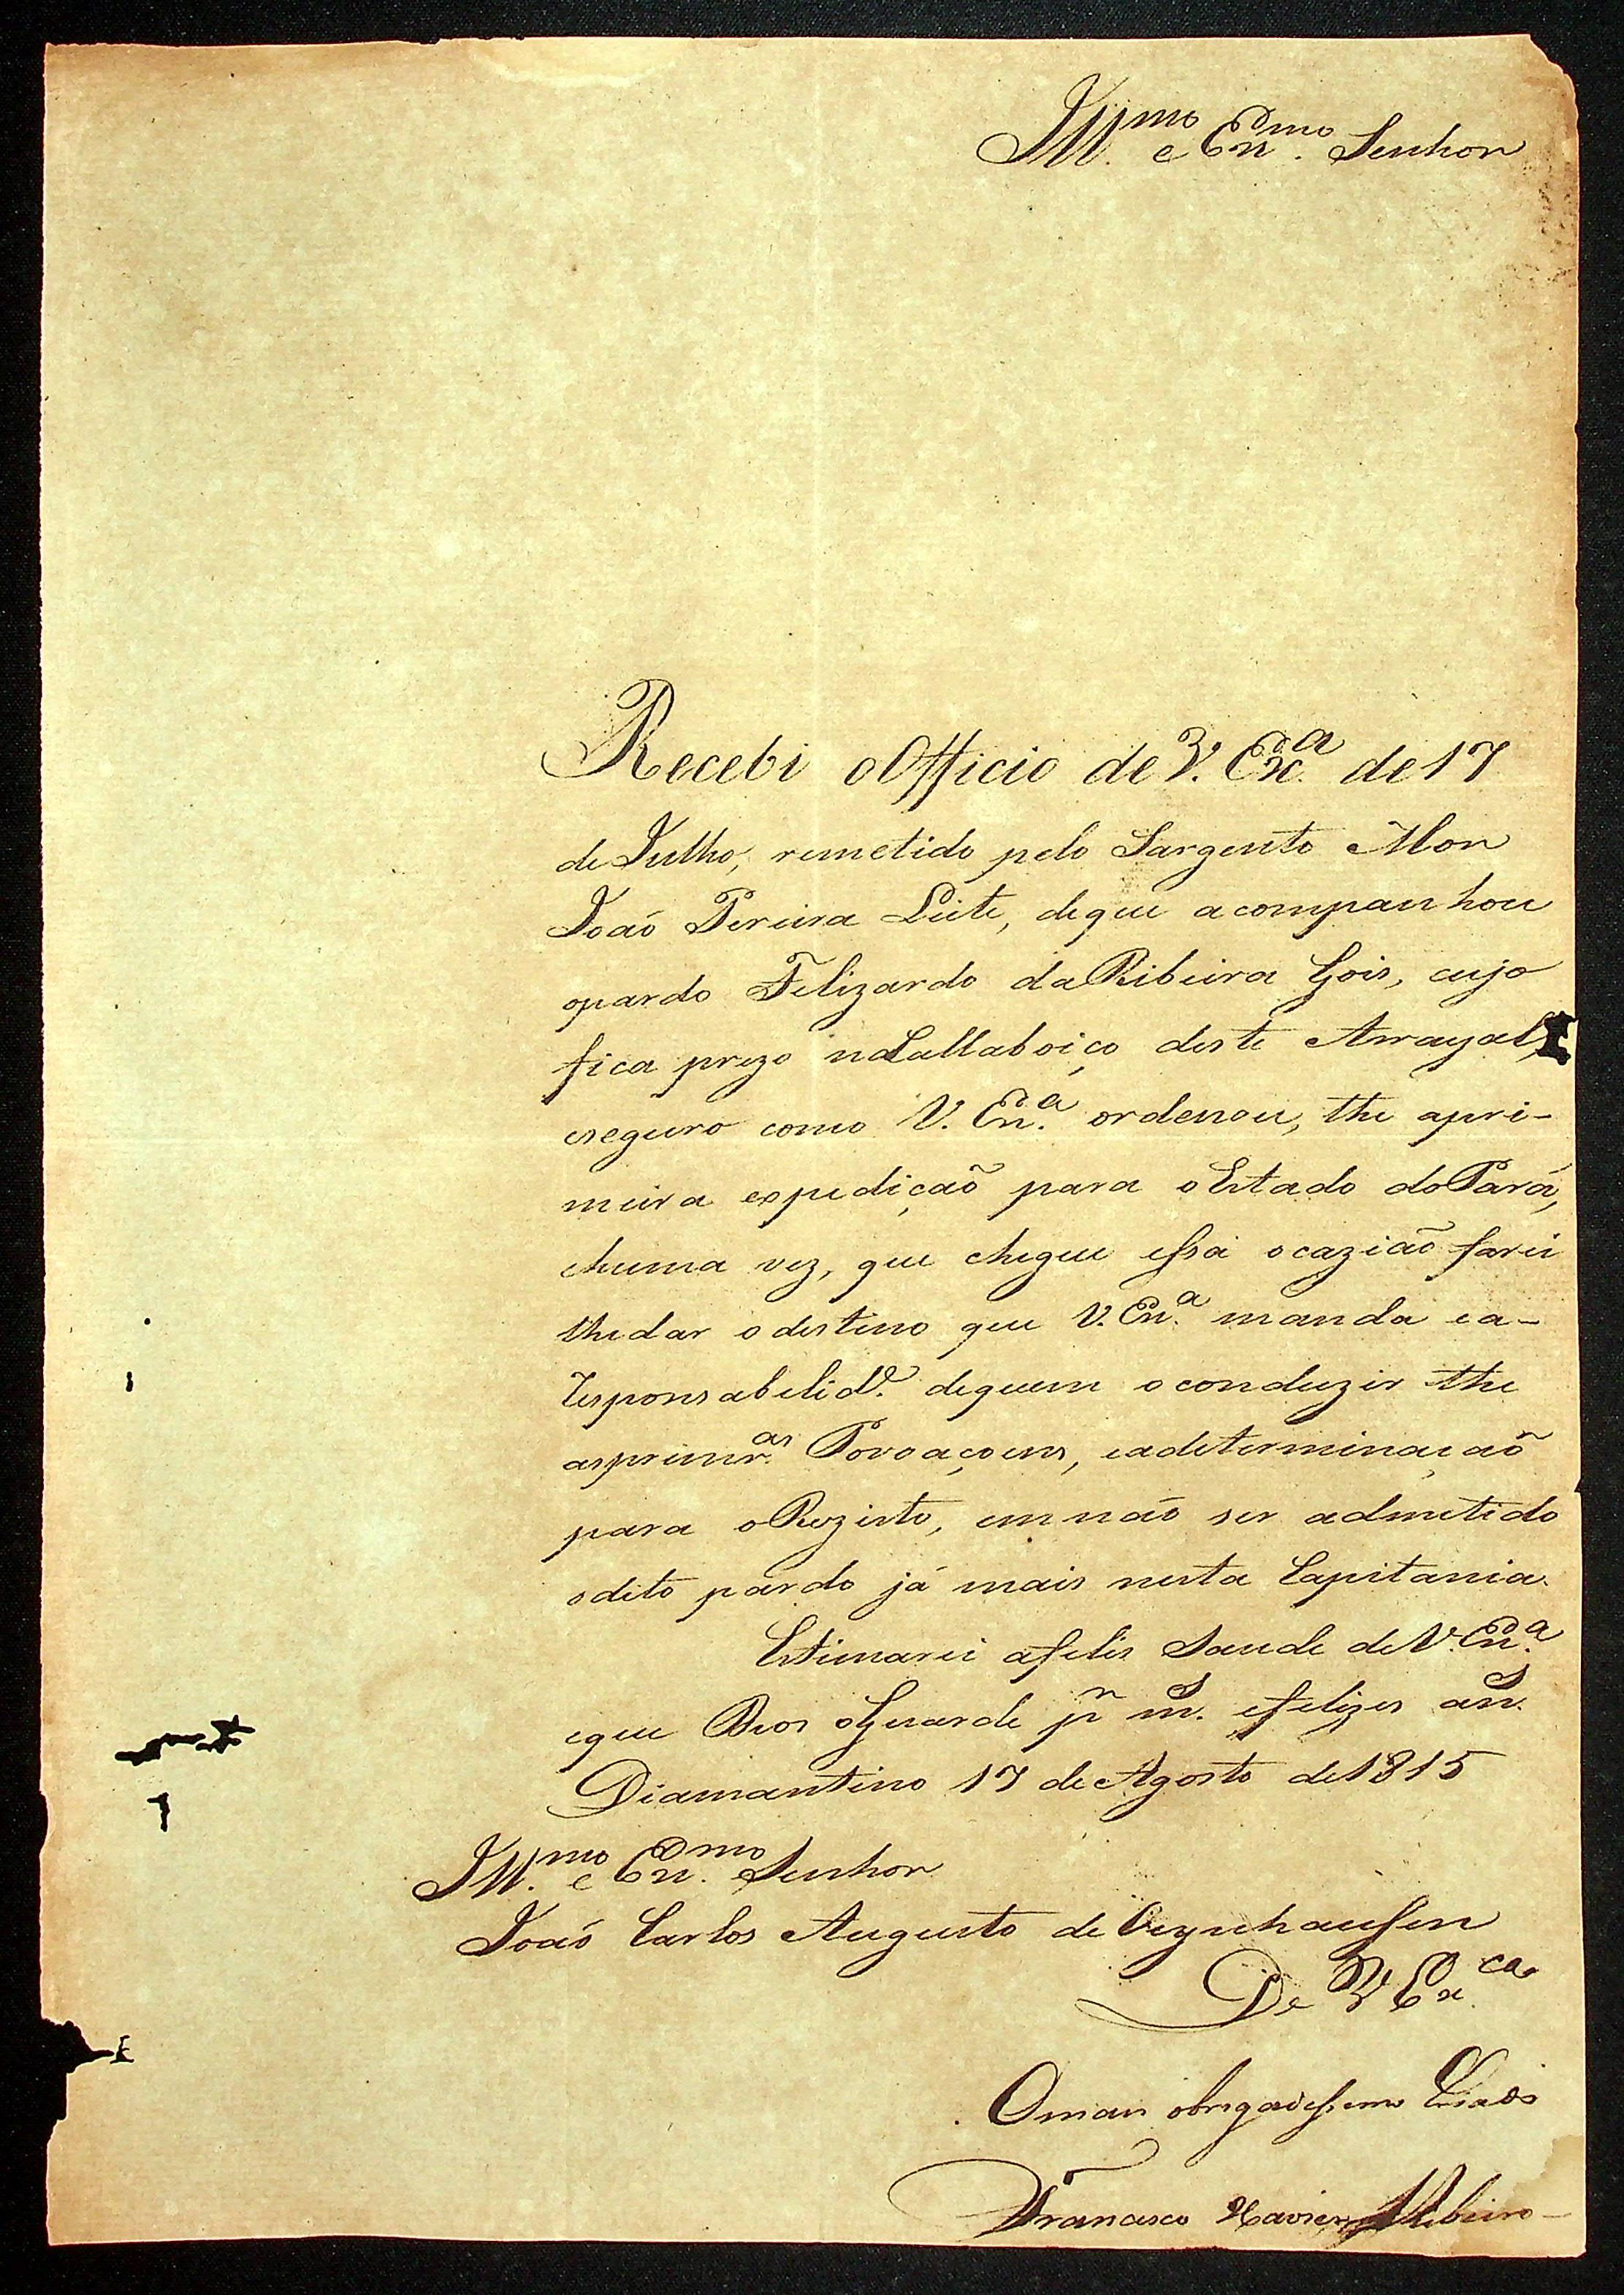 Ill.mo e Ex.mo Senhor
Recebi oOfficio de V. Exc.a de 17
de Julho, remetido pelo Sargento Mor
Joaõ Pereira Leite, deque acompanhou
opardo Felizardo daRibeira Gois, cujo
fica prezo naCallaboiço deste Arrayal,
eseguro como V. Ex.a ordenou, the apri-
meira expediçaõ para oEstado doPará,
ehuma vez, que chegue essa ocaziaõ farei
lhedar odestino que V. Ex.a manda ea-
responsabelid.e dequem oconduzir the
asprimr.as Povoaçoens, eadeterminaçaõ
para oRezisto, emnaõ ser admetido
odito pardo já mais nesta Capitania.
Estimarei afelis Saude deV. Ex.a
eque Deos oGuarde pr m.s efelizes an.s
Diamantino 17 de Agosto de 1815
Ill.mo e Ex.mo Senhor
Joaõ Carlos Augusto de Oeynhaussen
De V Ex.ca
Omais obrigadissimo Criado
Francisco Xavier Ribeiro